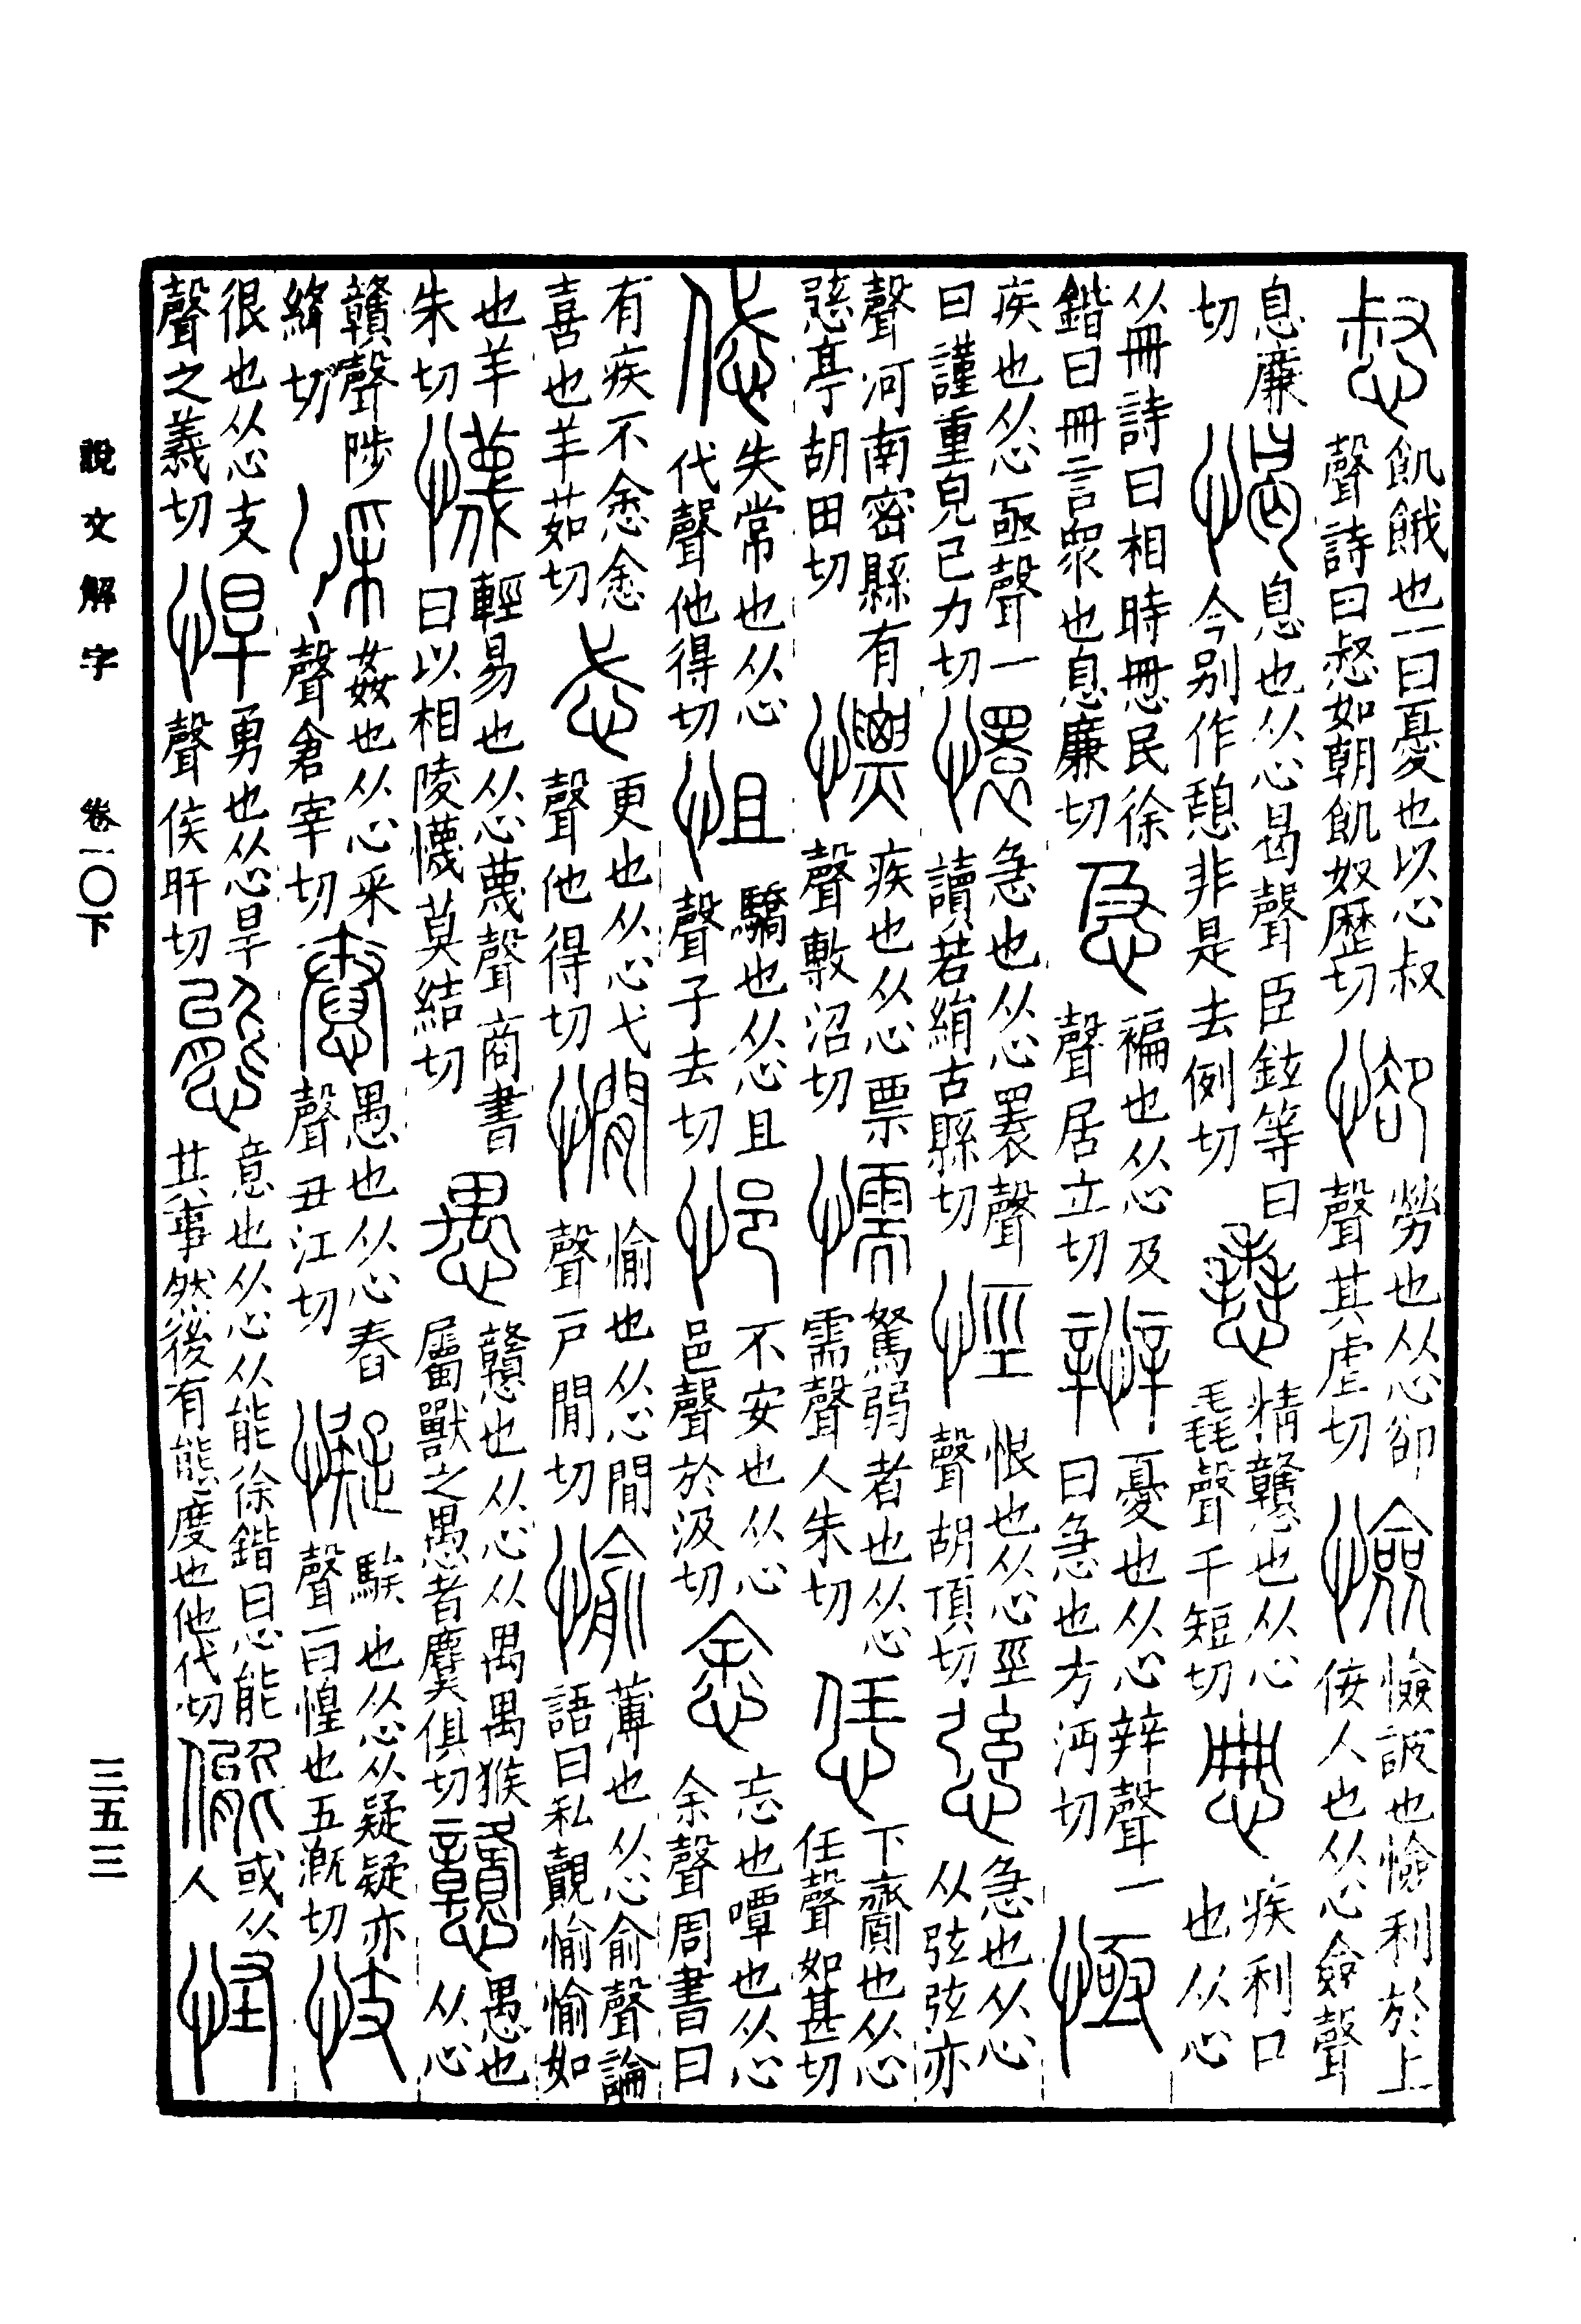 惄飢餓也一曰憂也从心叔聲詩曰惄如朝飢奴歷切勞也从心卻聲其虐切憸憸詖也憸利於上佞人也从心僉聲
息廉切愒息也从心曷聲臣鉉等曰今别作憩非是去例切精戇也从心毳聲千短切疾利口也从心
从冊詩曰相時民徐鍇曰冊言衆也息廉切急褊也从心及聲居立切憂也从心辡聲一曰急也方沔切㥛
疾也从心亟聲一曰謹重皃己力切懁急也从心瞏聲讀若絹古縣切恨也从心巠聲胡頂切急也从心从弦弦亦
聲河南密縣有亭胡田切慓疾也从心票聲敷沼切懦駑弱者也从心需聲人朱切恁下齎也从心任聲如甚切
失常也从心代聲他得切怚驕也从心且聲子去切悒不安也从心邑聲於汲切悆忘也嘾也从心余聲周書曰
有疾不悆悆喜也羊茹切忒更也从心弋聲他得切憪愉也从心閒聲戶閒切愉薄也从心俞聲論語曰私覿愉愉如
也羊朱切懱輕易也从心蔑聲商書曰以相陵懱莫結切愚戇也从心从禺禺猴屬獸之愚者麌俱切戇愚也从心
贛聲陟絳切姦也从心采聲倉宰切惷愚也从心舂聲丑江切懝騃也从心从疑疑亦聲一曰惶也五溉切忮
很也从心支聲之義切悍勇也从心旱聲矦旰切態意也从心从能徐鍇曰心能其事然後有態度也他代切或从人怪
說文解字 卷一〇下
三五三